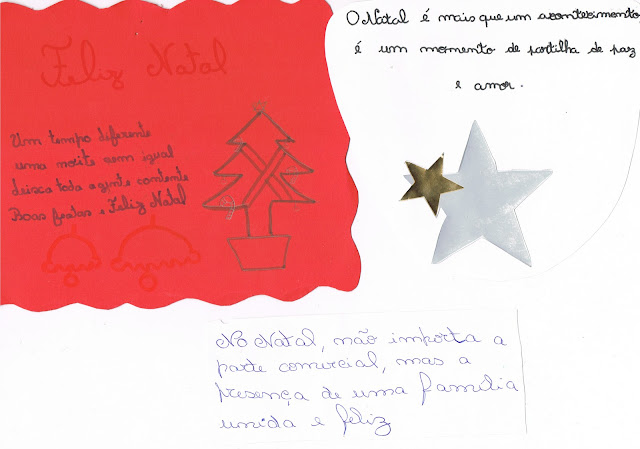 Feliz Natal
Um tempo diferente
uma noite sem igual
deixa toda a gente contente
Boas festas e Feliz Natal
O Natal é mais que um acontecimento
é um momento de partilha de paz
e amor.
No Natal, não importa a
parte comercial, mas a
presença de uma família
unida e feliz